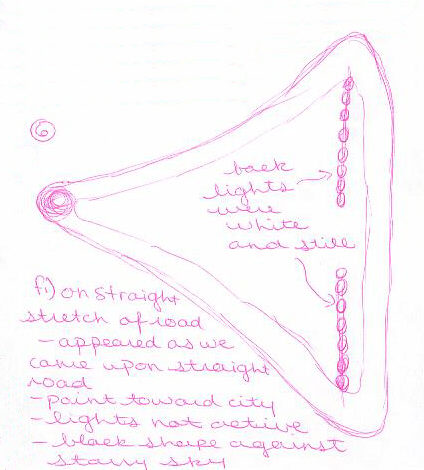 6
back
lights
were
white
and still
f.) on straight
stretch of road
- appeared as we
came upon straight
road
- point toward city
- lights not active
- black shape against
starry sky